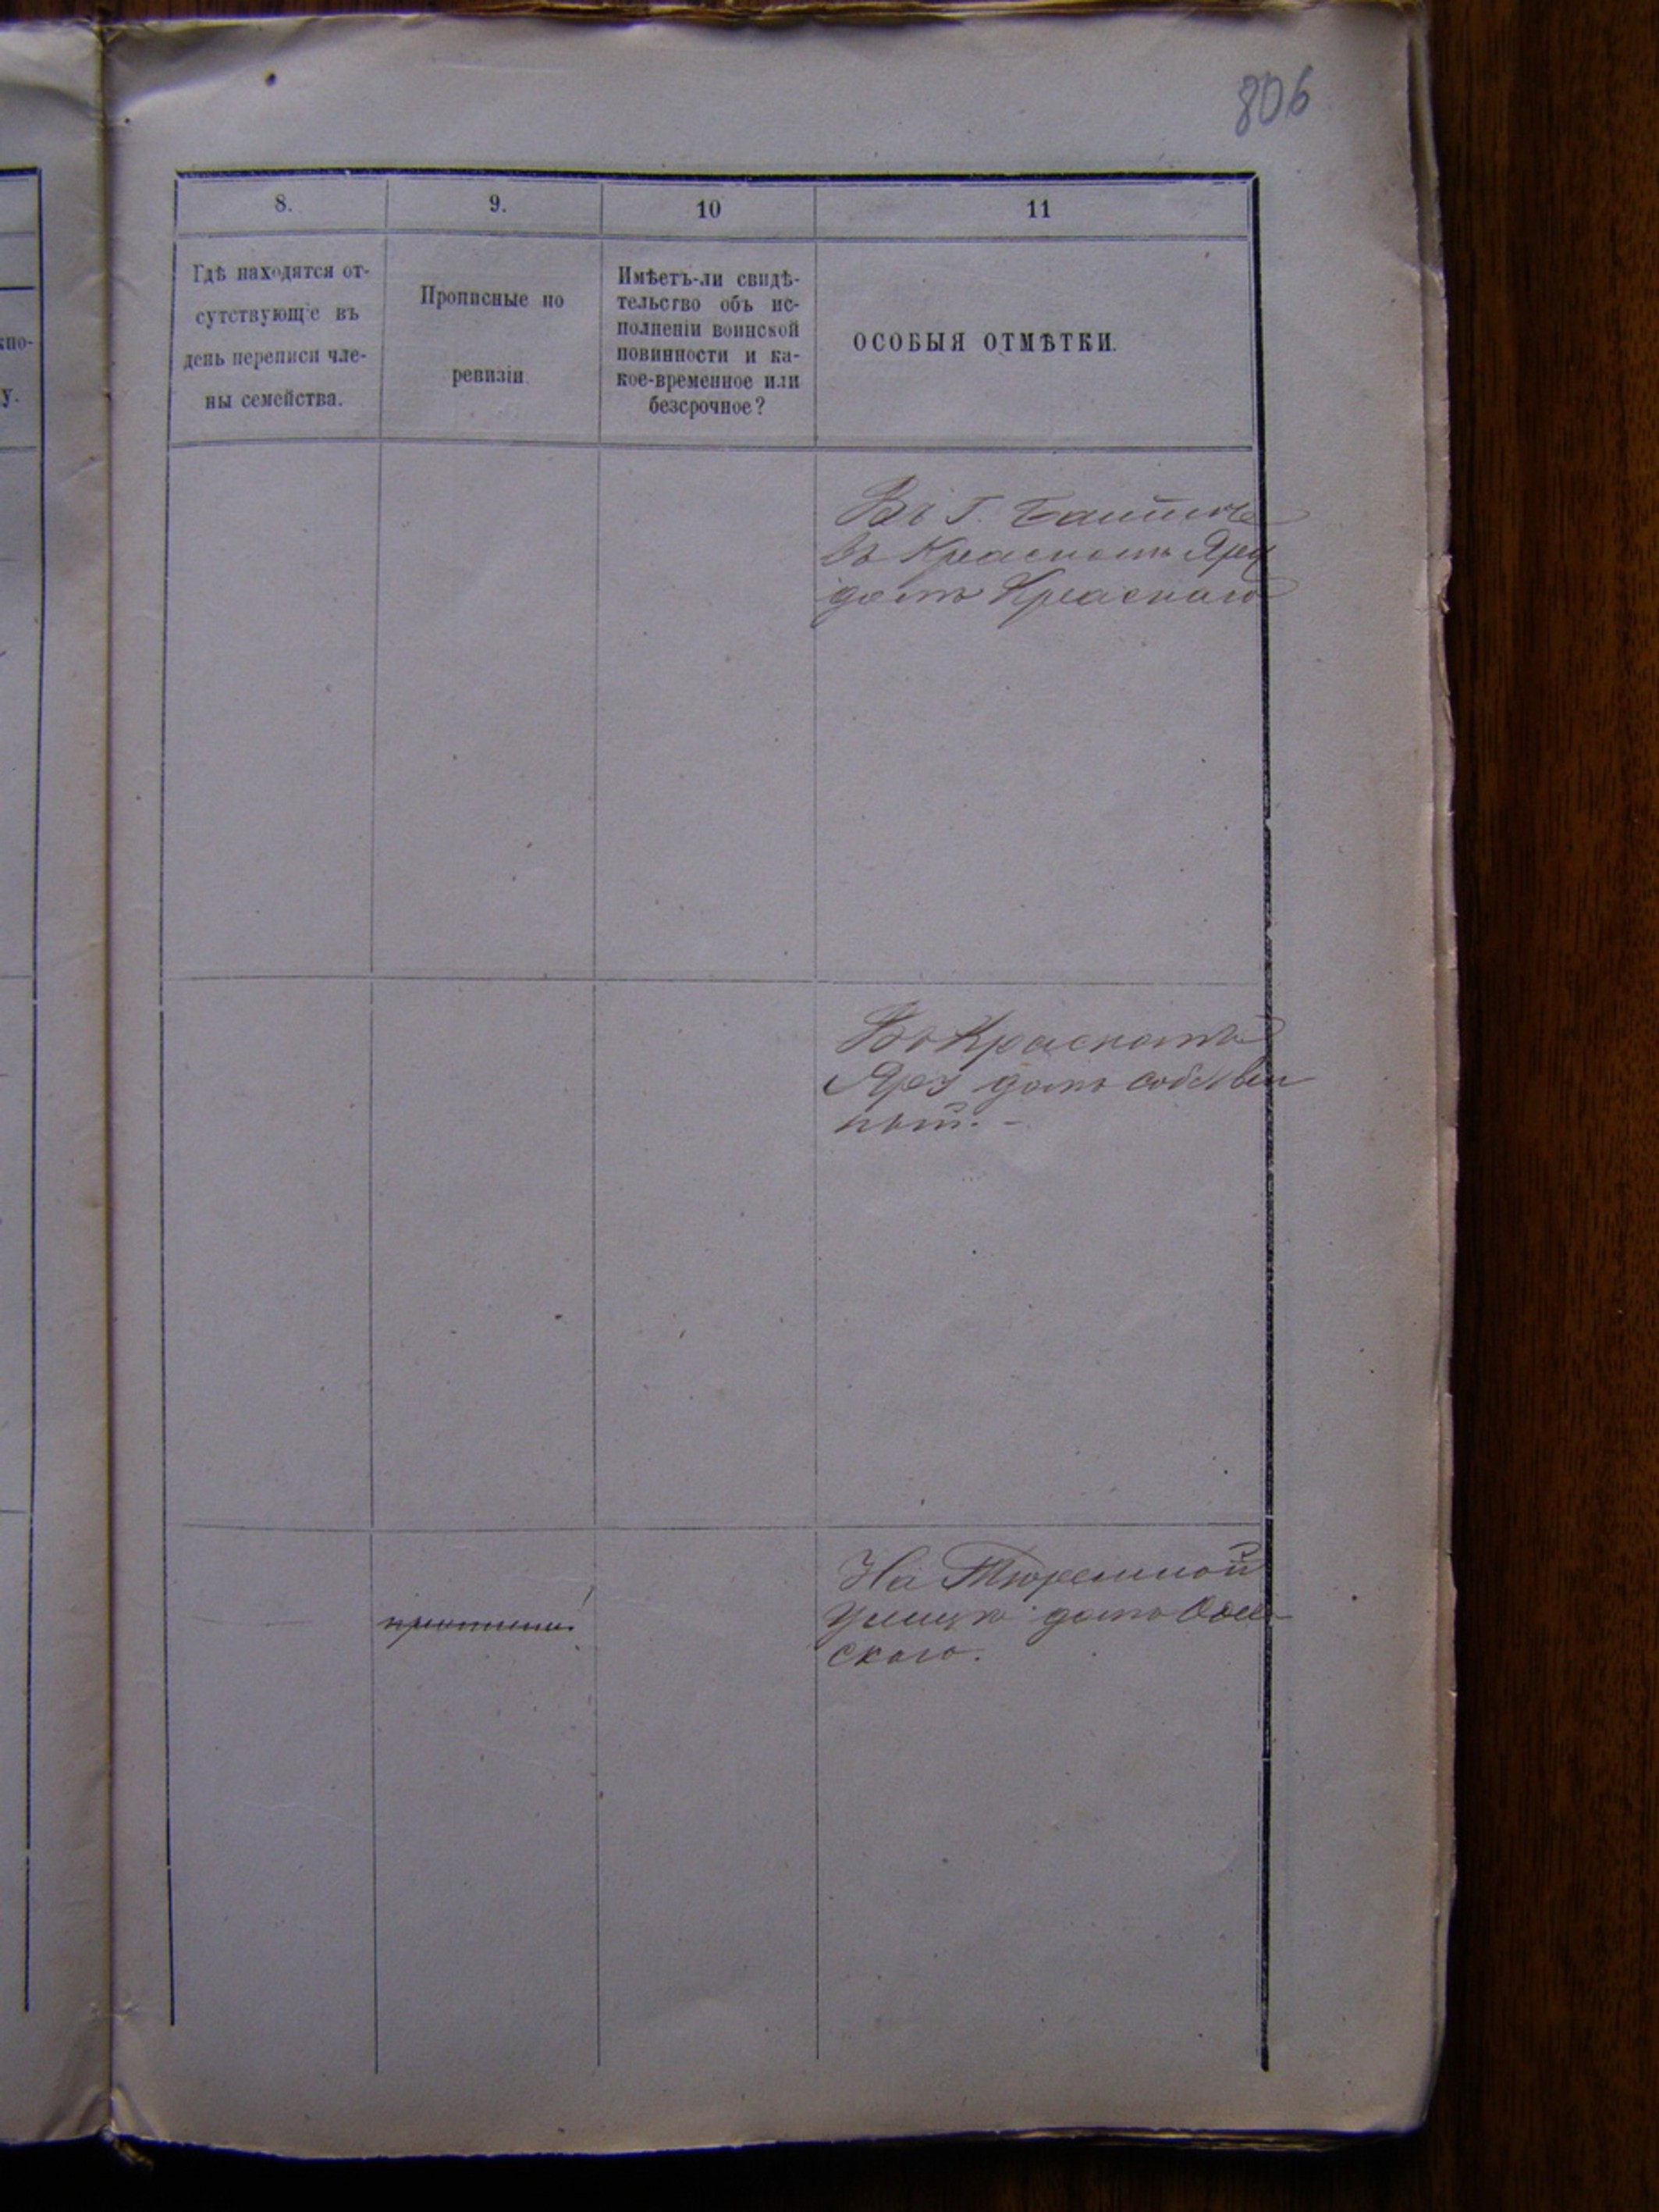 806
8.
9.
10
11
Гдѣ находятся от-
сутствующіе въ
день переписи чле-
ны семейства.
Прописные по
ревизіи.
Имѣетъ-ли свидѣ-
тельство объ ис-
полненіи воинской
повинности и ка-
кое-временное или
безсрочное?
ОСОБЫЯ ОТМѢТКИ.
Въ Г.
въ Красномъ Яру
домъ Краснаго
Въ Красномъ
Яру домъ собствен
ный. -
На Тюремной
улицѣ домъ
ского.
кно-
у.